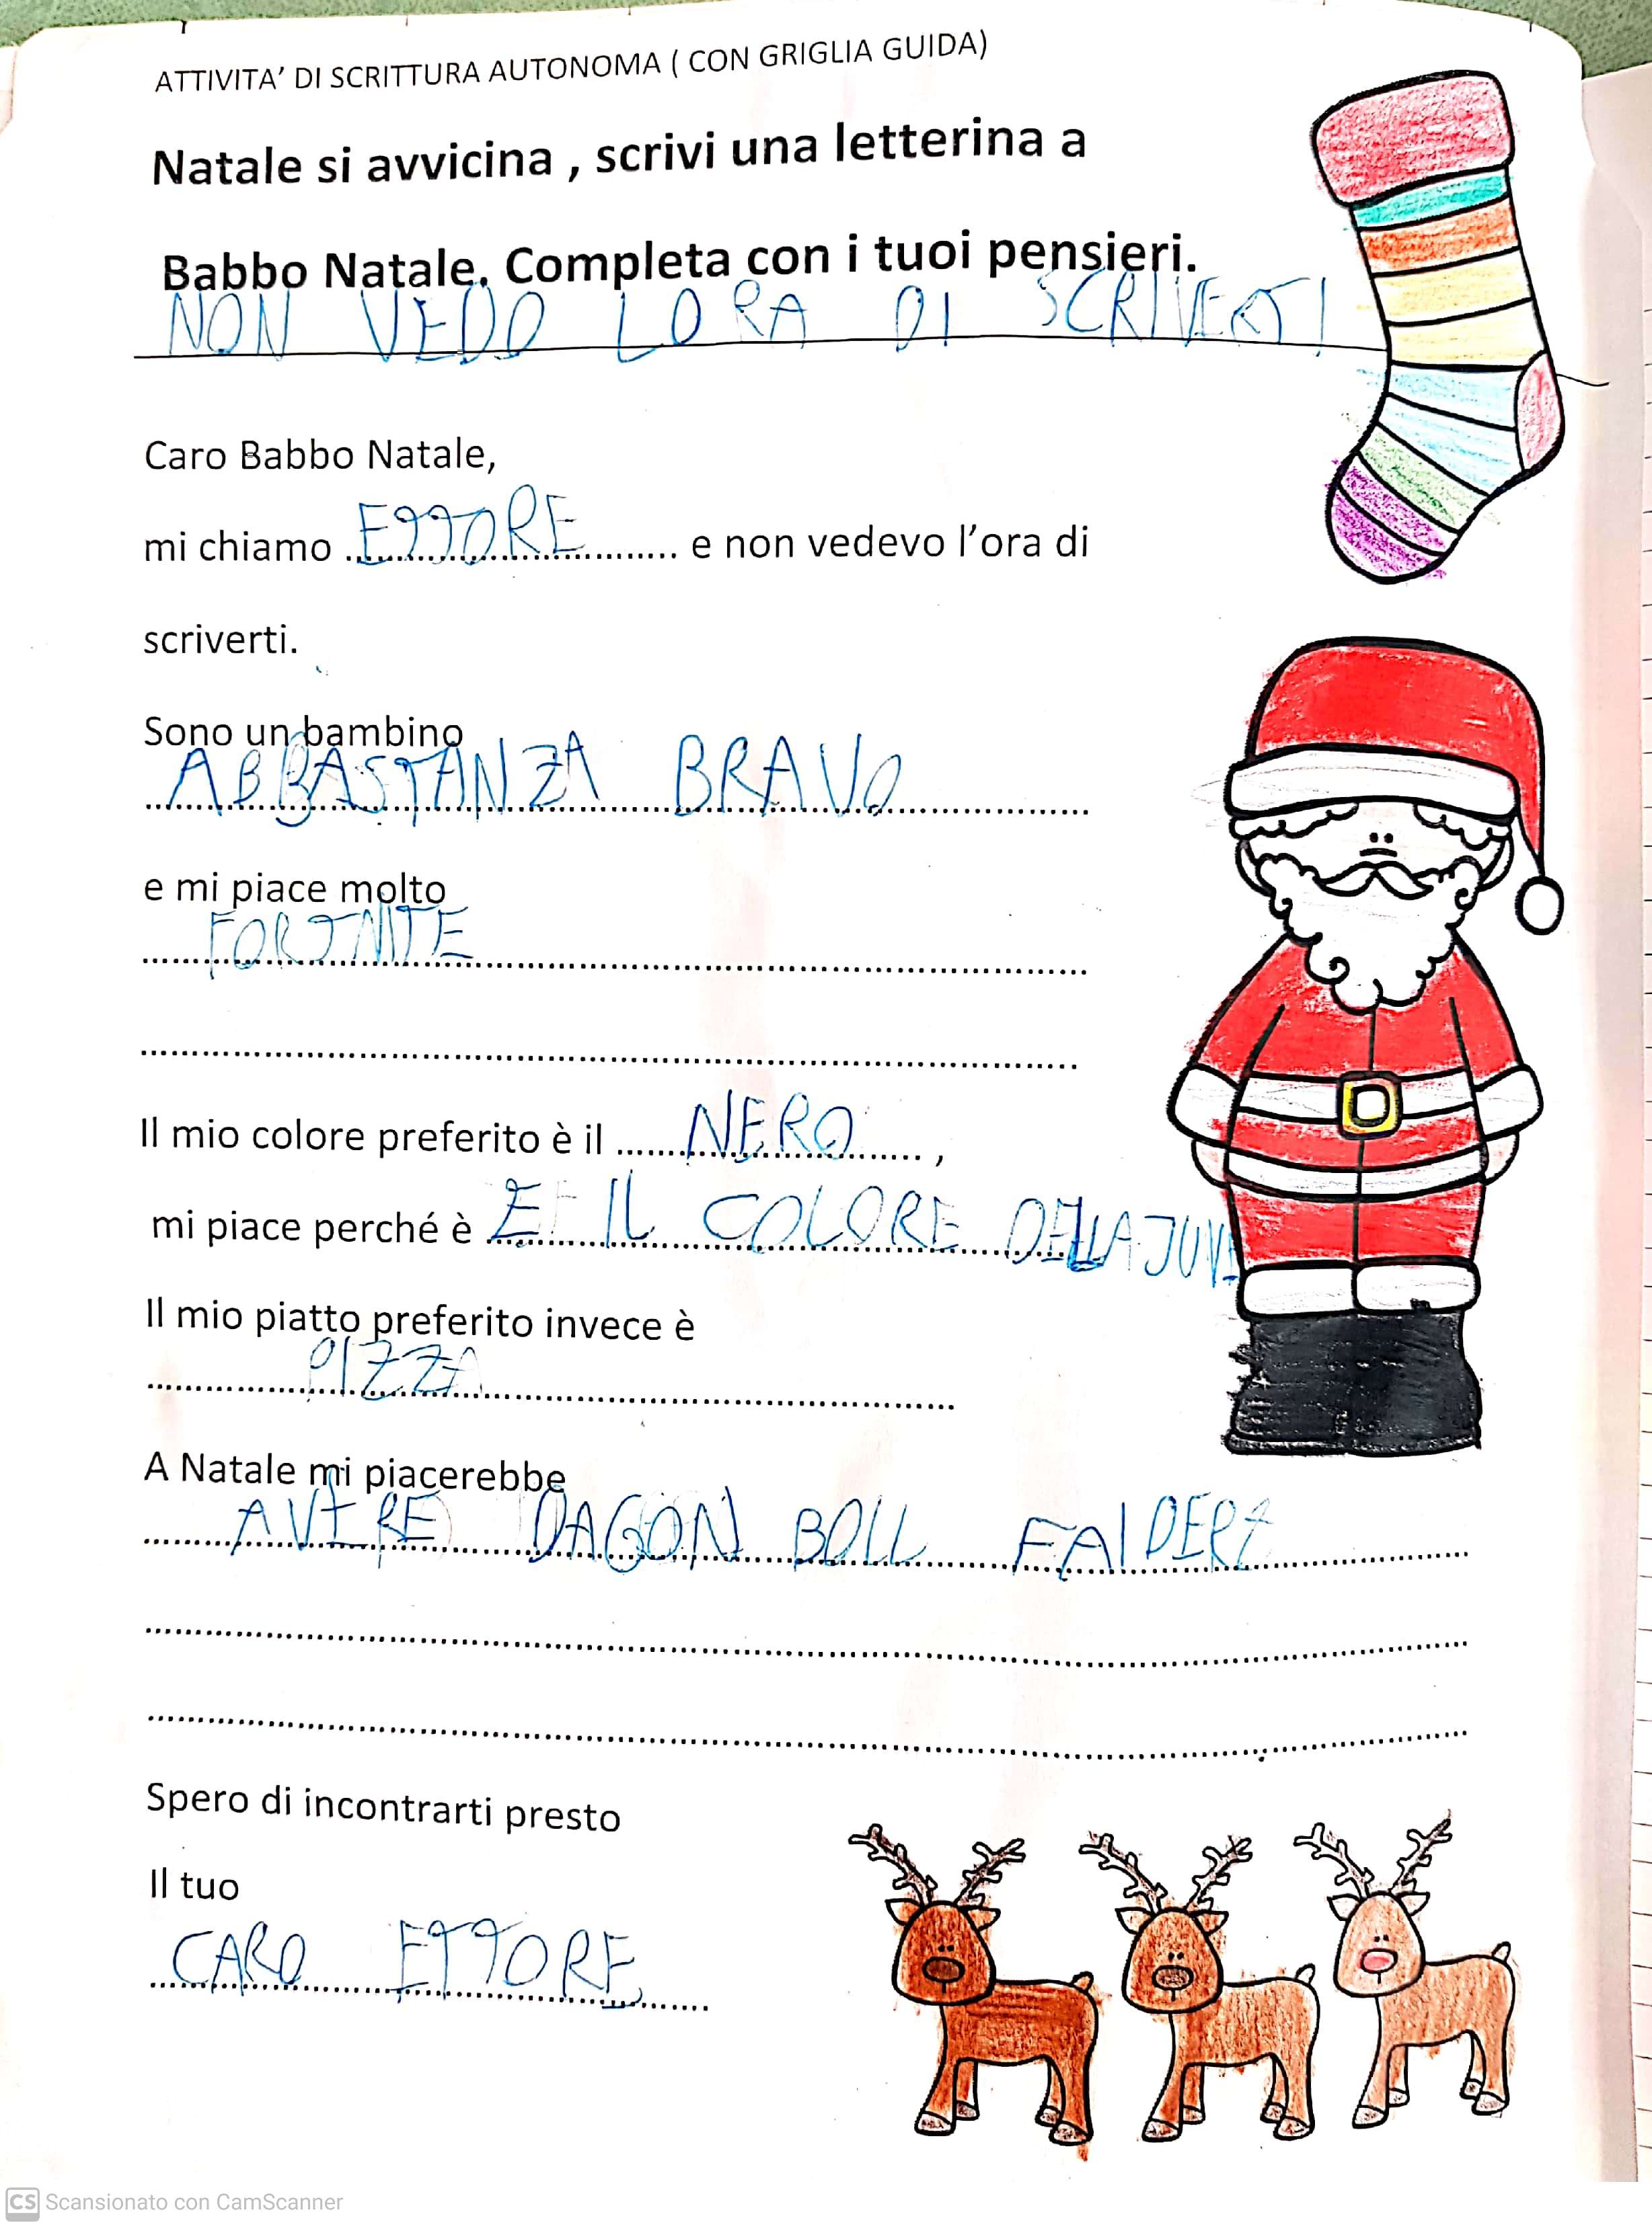 ATTIVITA’ DI SCRITTURA AUTONOMA ( CON GRIGLIA GUIDA)
Natale si avvicina , scrivi una letterina a
Babbo Natale. Completa con i tuoi pensieri.
NON VEDO LORA DI SCRIVERTI
Caro Babbo Natale,
mi chiamo ETTORE e non vedevo l’ora di
scriverti.
Sono un bambino
ABBASTANZA BRAVO
e mi piace molto
FORTNITE
Il mio colore preferito è il NERO ,
mi piace perché è E IL COLORE DELLA JUVE
Il mio piatto preferito invece è
PIZZA
A Natale mi piacerebbe
AVERE DAGON BOLL FAIDERZ
Spero di incontrarti presto
Il tuo
CARO ETTORE
CS Scansionato con CamScanner